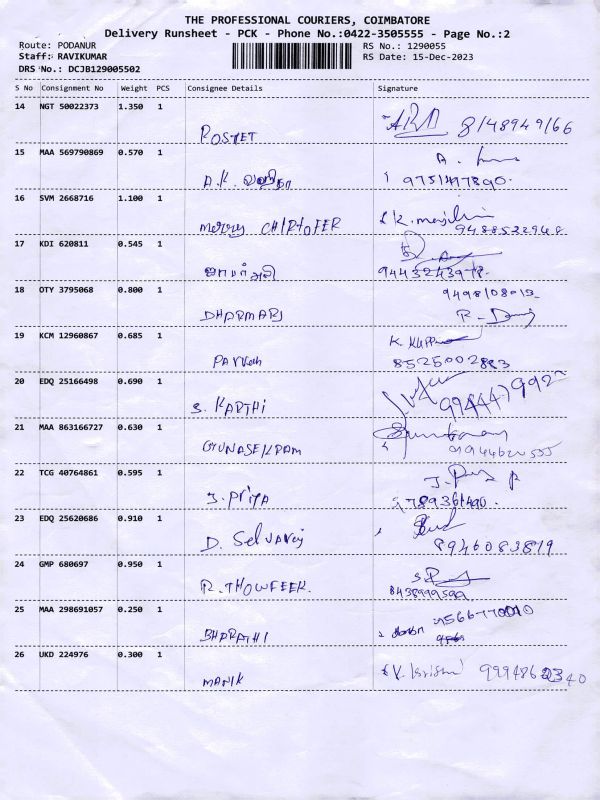 THE PROFESSIONAL COURIERS, COIMBATORE
Delivery Runsheet - PCK - Phone No.:0422-3505555 - Page No.:2
Route: PODANUR RS No.: 1290055
Staff: RAVIKUMAR RS Date: 15-Dec-2023
DRS No.: DCJB129005502
S No Consignment No Weight PCS Consignee Details Signature
14 NGT 50022373 1.350 1
ARD 8148949166
15 MAA 569790869 0.570 1
A.K.
16 SVM 2668716 1.100 1
K.
merry CHIRTOFER 9488522948
17 KDI 620811 0.545 1
ஜாபர்அலி 9443243978.
18 OTY 3795068 0.800 1 9498108013
DHARMARJ R.
19 KCM 12960867 0.685 1 K.
8525002883
20 EDQ 25166498 0.690 1
S. KARTHI
21 MAA 863166727 0.630 1
GUNASEKRAM
22 TCG 40764861 0.595 1 J.
J. PRIYA 9789361490.
23 EDQ 25620686 0.910 1
D. Selvaraj 8946083819
24 GMP 680697 0.950 1 S.
R. THOWFEEK. 8438999599
25 MAA 298691057 0.250 1 9566770010
BHARATHI
26 UKD 224976 0.300 1 V.
MANIK